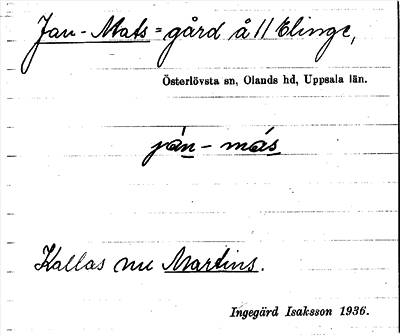 Jan-Mats=gård å 11 Elinge,
Österlövsta sn, Olands hd, Uppsala län.
ján - más
Kallas nu Martins.
Ingegärd Isaksson 1936.